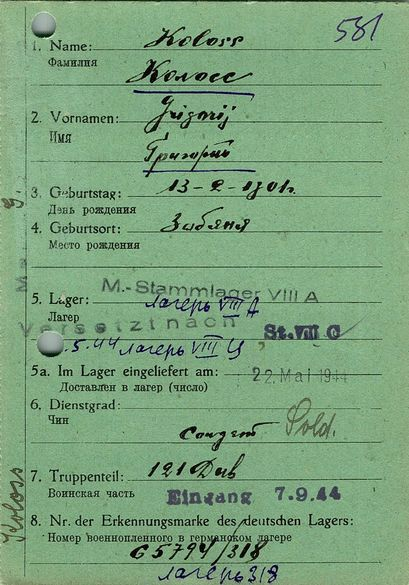 581
1. Name: Koloss
Фамилия
Колосс
2. Vornamen: Grigorij
Имя
Григорий
3. Geburtstag: 13-2-1901г.
День рождения
4. Geburtsort:
Место рождения
M.-Stammlager VIII A
5. Lager: лагерь VIII A
Лагер
Versetzt nach St. VIII C
.5.44 лагерь VIII Ц
5a. Im Lager eingeliefert am: 22. Mai 1944
Доставлен в лагер (число)
6. Dienstgrad:
Чин
Солдат Sold.
7. Truppenteil: 121
Воинская часть Eingang 7.9.44
8. Nr. der Erkennungsmarke des deutschen Lagers:
Номер военнопленного в германском лагере
65794/318
лагерь 318
Koloss